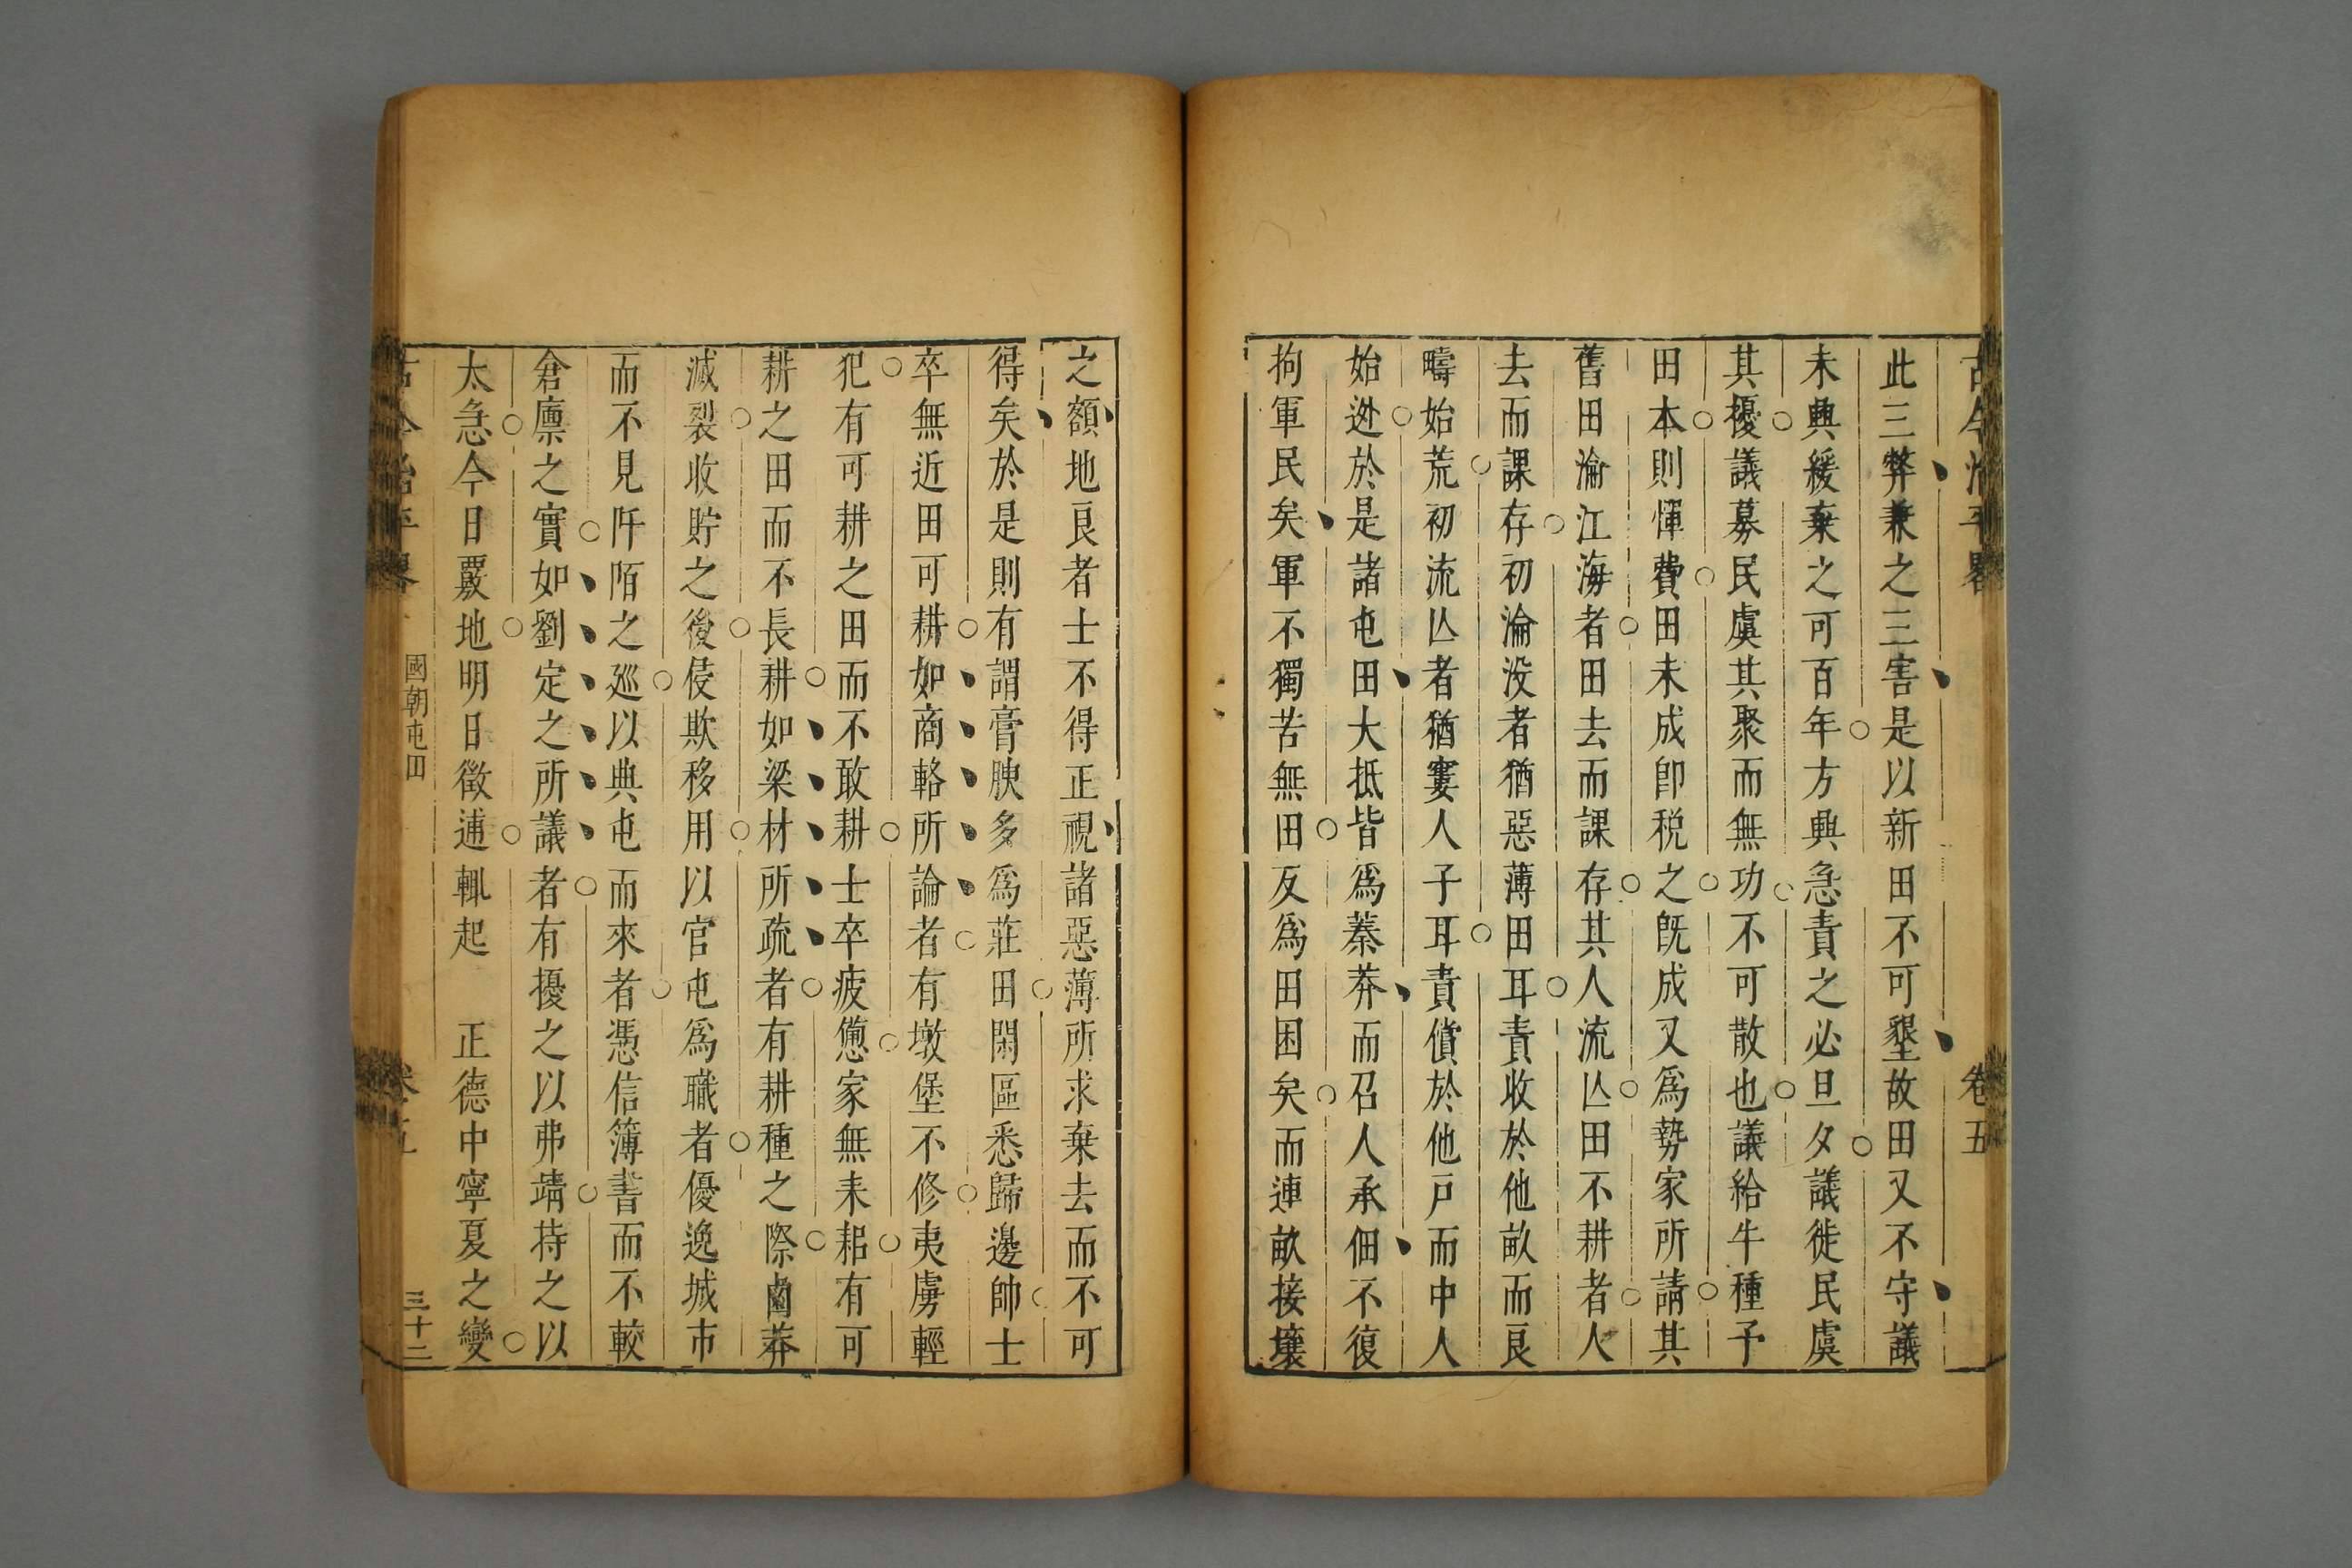 古今治平畧 卷五
此三弊兼之三害是以新田不可墾故田又不守議
未興緩棄之可百年方興急責之必旦夕議徙民虞
其擾議募民虞其聚而無功不可散也議給牛種予
田本則惲費田未成卽税之旣成又爲勢家所請其
舊田淪江海者田去而課存其人流亾田不耕者人
去而課存初淪没者猶惡薄田耳責收於他畝而良
疇始荒初流亾者猶窶人子耳責償於他戸而中人
始迯於是諸屯田大抵皆爲蓁莽而召人承佃不復
拘軍民矣軍不獨苦無田反爲田困矣而連畝接壤
之額地良者士不得正視諸惡薄所求棄去而不可
得矣於是則有謂膏腴多爲莊田閑區悉歸邊帥士
卒無近田可耕如商輅所論者有墩堡不修夷虜輕
犯有可耕之田而不敢耕士卒疲憊家無耒耜有可
耕之田而不長耕如梁材所疏者有耕種之際鹵莽
滅裂收貯之後侵欺移用以官屯爲職者優逸城市
而不見阡陌之廵以典屯而來者憑信簿書而不較
倉廪之實如劉定之所議者有擾之以弗靖持之以
太急今日覈地明日徵逋輒起 正德中寧夏之變
古今治平畧 國朝屯田 卷五 三十二